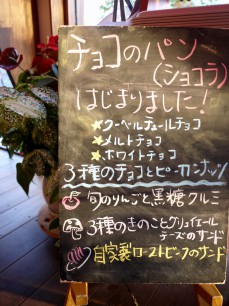 チョコのパン
(ショコラ)
はじまりました!
★クーベルチュールチョコ
★メルトチョコ
★ホワイトチョコ
3種のチョコとピーカンナッツ
旬のりんごと黒糖クルミ
3種のきのことグリュイエール
チーズのサンド
自家製ローストビーフのサンド